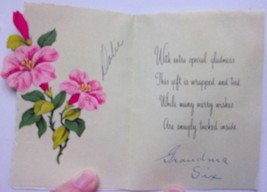 Dalie
With extra special gladness
This gift is wrapped and tied
While many merry wishes
Are snugly tucked inside.
Grandma
Six